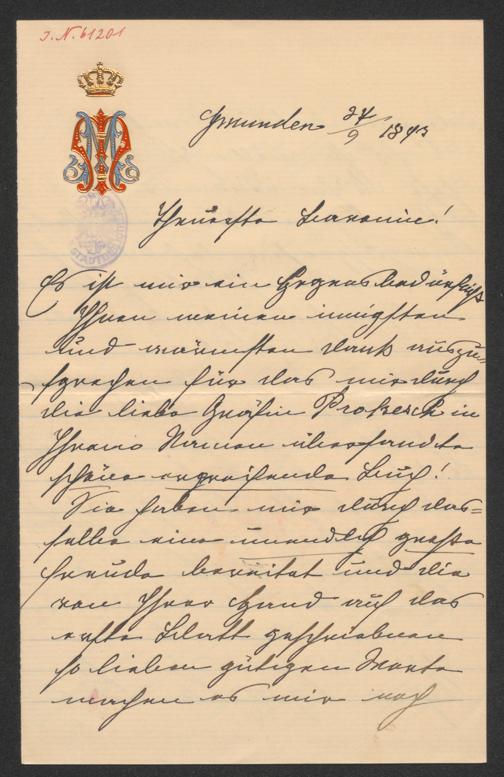 J. N. 61201
Gmunden 24/9 1893
Theuerste Baronin!
Es ist mir ein Herzensbedürfniß
Ihnen meinen innigsten
und wärmsten Dank auszu-
sprechen für das mir durch
die liebe Gräfin Prokesch in
Ihrem Namen übersandte
schöne ergreifende Buch!
Sie haben mir durch das-
selbe eine unendlich große
Freude bereitet und die
von Ihrer Hand auf das
erste Blatt geschriebenen
so lieben gütigen Worte
machen es mir noch